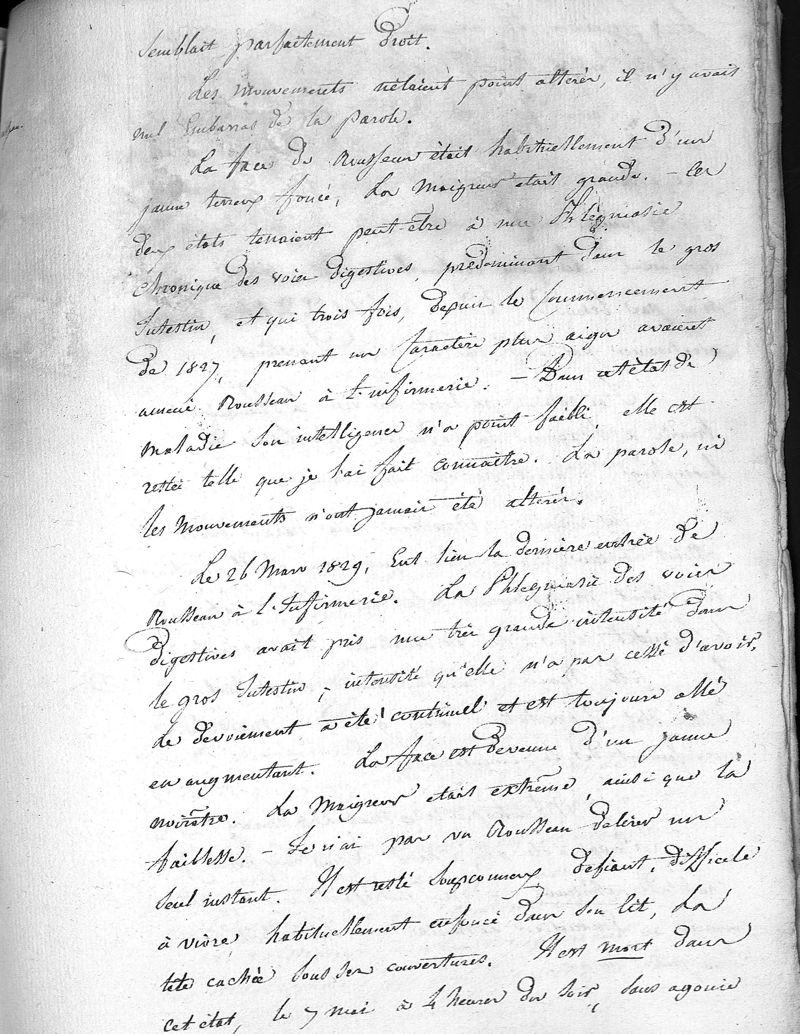 semblait parfaitement droit.
Les mouvements n'étaient point altérés, il n'y avait
nul Embarras de la parole.
La face de Rousseau était habituellement d'un
jaune terreux foncé, La Maigreur était grande. - Ces
deux états tenaient peut-être à une Phlegmasie
chronique des voies digestives, prédominant dans le gros
Intestin, et qui trois fois, depuis le Commencement
de 1827, prenant un Caractère plus aigu avaient
amené Rousseau à l'infirmerie. - Dans cet état de
maladie son intelligence n'a point faibli, elle est
restée telle que je l'ai fait connaître. La parole, ni
les Mouvements n'ont jamais été altérés.
Le 26 Mars 1829, Eut lieu la dernière entrée de
Rousseau à l'Infirmerie. La Phlegmasie des voies
digestives avait pris une très grande intensité dans
le gros Intestin, intensité qu'elle n'a pas cessé d'avoir.
Le devoiement a été continuel et est toujours allé
en augmentant. La face est devenue d'un jaune
noirâtre. La Maigreur était extrême, ainsi que la
faiblesse. - Je n'ai pas vu Rousseau délirer un
seul instant. Il est resté Soupçonneux, défiant, difficile
à vivre, habituellement enfoncé dans son lit, La
tête cachée sous ses couvertures. Il est mort dans
cet état, le 7 mai à 4 heures du soir, sans agonie